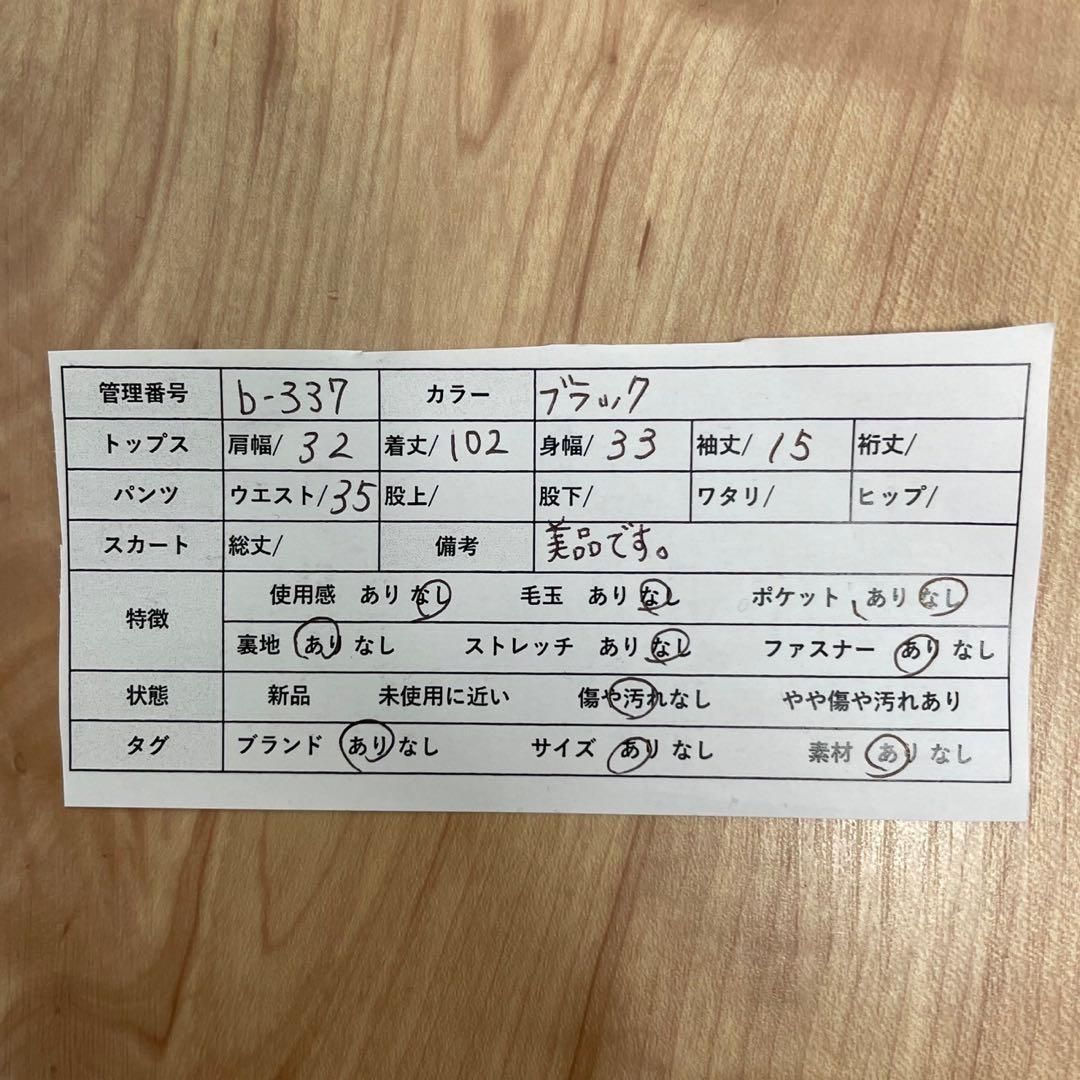 管理番号 b-337 カラー ブラック
トップス 肩幅/ 32 着丈/ 102 身幅/ 33 袖丈/ 15 裄丈/
パンツ ウエスト/ 35 股上/ 股下/ ワタリ/ ヒップ/
スカート 総丈/ 備考 美品です。
特徴 使用感 あり なし 毛玉 あり なし ポケット あり なし
裏地 あり なし ストレッチ あり なし ファスナー あり なし
状態 新品 未使用に近い 傷や汚れなし やや傷や汚れあり
タグ ブランド あり なし サイズ あり なし 素材 あり なし